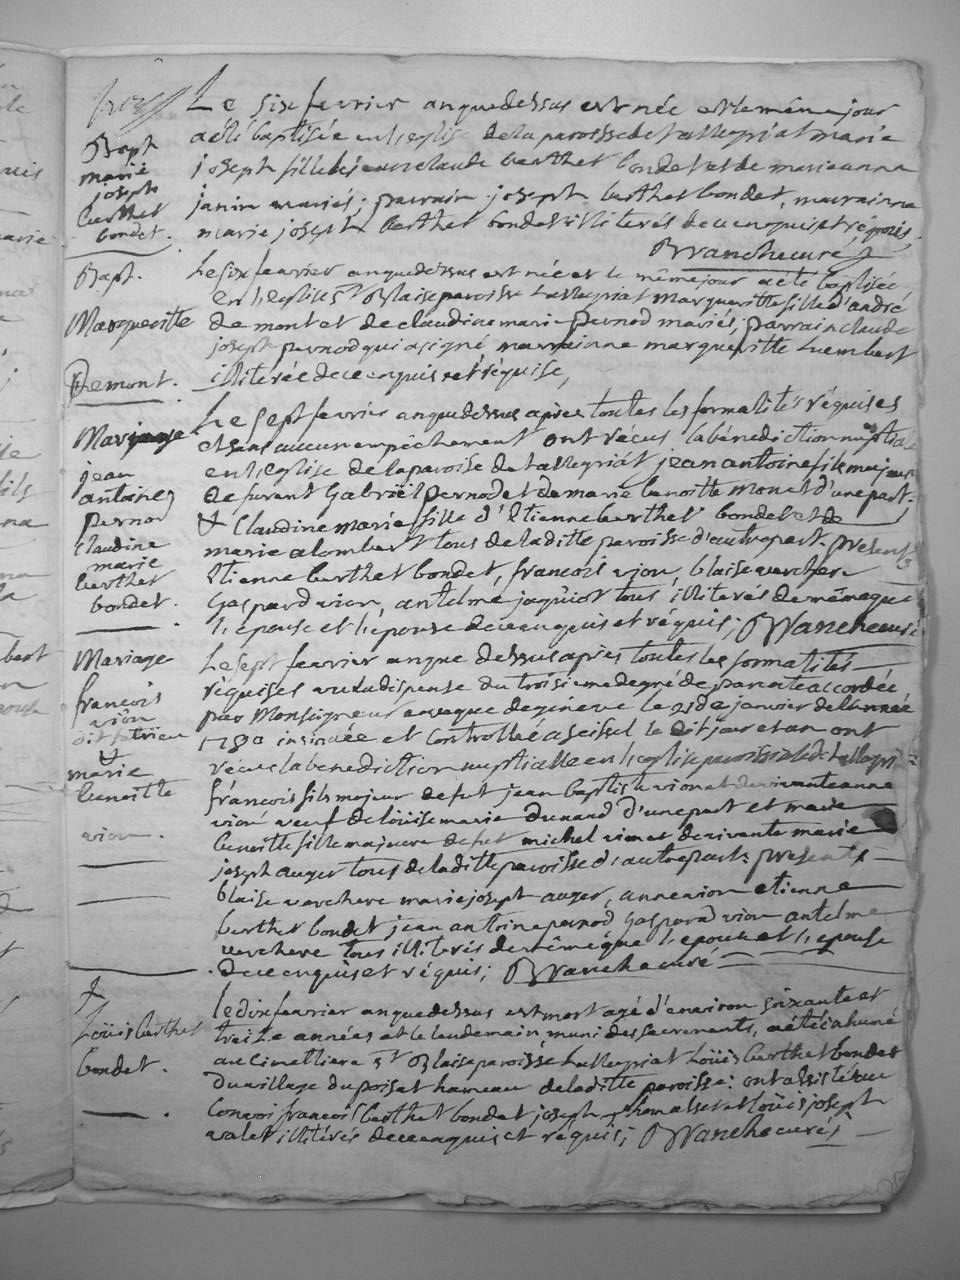 Bapt
marie
joseph
berthet
bondet.
Le six fevrier an que dessus est née et le même jour
a été baptisée en l'eglise de la paroisse de tallegriat marie
joseph fille de jean claude berthet bondet et de marianne
janin mariés; parrain joseph berthet bondet, marrainne
marie joseph berthet bondet illiterés de ce enquis et réquis.
Branche curé
Bapt.
Margueritte
Demont.
Le six fevrier an que dessus est née et le même jour a été baptisée
en l'eglise St Blaise paroisse tallegriat margueritte fille d'andré
de mont et de claudine marie pernod mariés; parrain claude
joseph pernod qui a signé marrainne margueritte humbert
illiterée de ce enquise et réquise,
Mariage
jean
antoine
pernod
claudine
marie
berthet
bondet.
Le sept fevrier an que dessus apres toutes les formalités réquises
et sans aucun empêchement ont récus la bénédiction nuptiale
en l'eglise de la paroisse de tallegriat jean antoine fils majeur
de furant Gabriël pernod et de marie benoitte monet d'une part.
& Claudine marie fille d'Etienne berthet bondet et de
marie alombert tous de la ditte paroisse d'autre part. presents
Etienne berthet bondet, francois vion, blaise verchere
Gaspard vion, antelme jaquiot tous illiterés de même que
l'epoux et l'épouse de ce enquis et réquis; Branche curé
Mariage
francois
vion
dit
&
marie
benoitte
vion.
Le sept fevrier an que dessus apres toutes les formalités
réquises vu la dispense du troisieme degré de parenté accordée
par Monseigneur eveque de geneve le 21 de janvier de l'année
1780 insinuée et controllée a seissel le dit jour et an ont
récus la benediction nuptialle en l'eglise paroissiale de tallegriat
francois fils majeur de fut jean baptiste vion et de vivante anne
vion veuf de loüise marie dunand d'une part et marie
benoitte fille majeure de fut michel vion et de vivante marie
joseph auger tous de la ditte paroisse d'autre part. presents
blaise verchere marie joseph auger, anne vion etienne
berthet bondet jean antoine pernod Gaspard vion antelme
verchere tous illiterés de même que l'epoux et l'epouse
de ce enquis et réquis; Branche curé
†
Loüis berthet
bondet.
le dix fevrier an que dessus est mort agé d'environ soixante et
treize années et le lendemain, muni des sacrements, a été inhumé
au cimettiere St Blaise paroisse tallegriat Loüis berthet bondet
du village du poisat hameau de la ditte paroisse: ont assisté au
convoi francois berthet bondet joseph et loüis joseph
valet illiterés de ce enquis et réquis; Branche curé